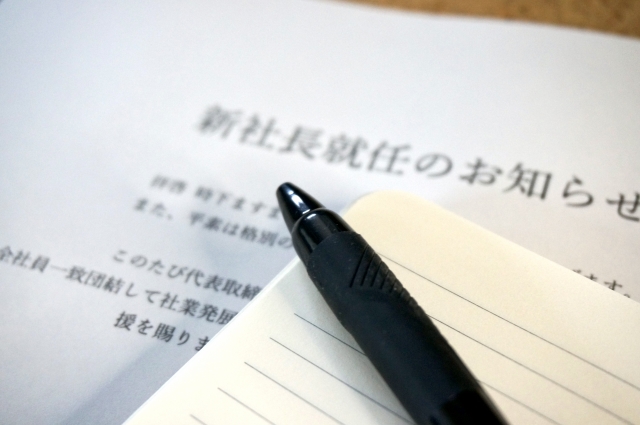 新社長就任のお知らせ
拝啓 時下ますま
また、平素は格別の
ます。
このたび代表取締
全社員一致団結して社業発展
援を賜りま